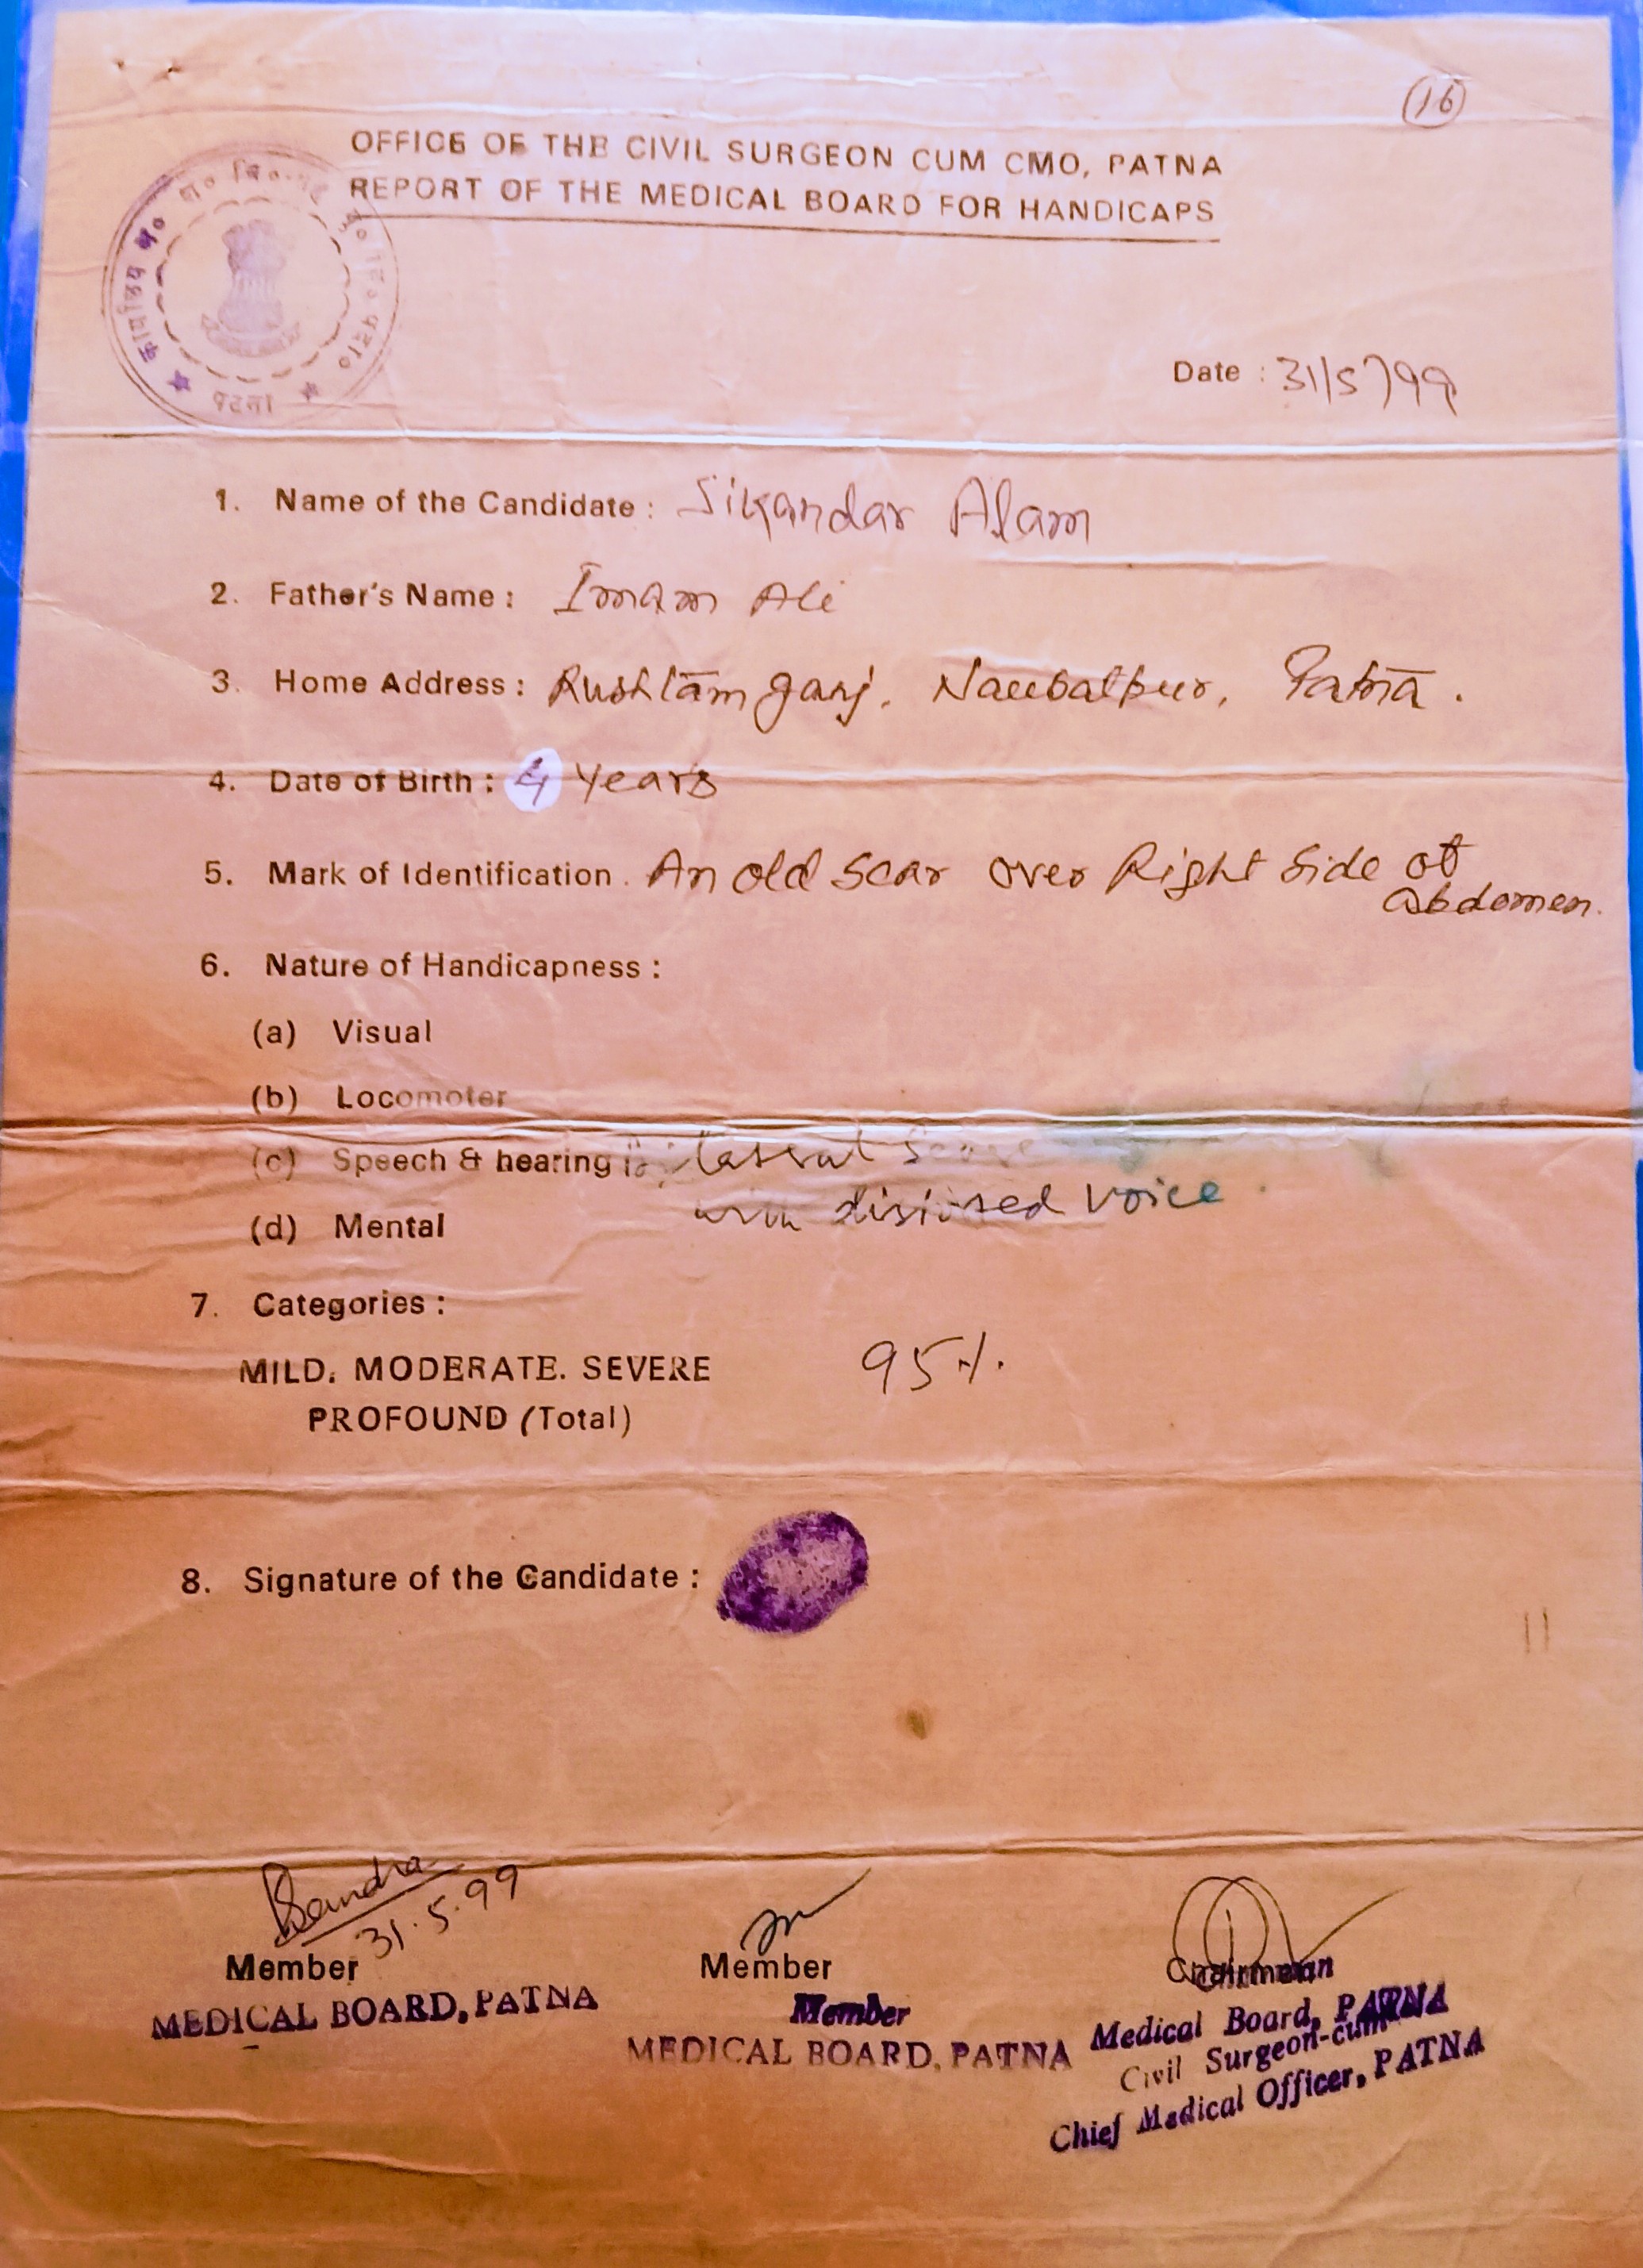 (16)
OFFICE OF THE CIVIL SURGEON CUM CMO, PATNA
REPORT OF THE MEDICAL BOARD FOR HANDICAPS
पटना
Date : 31/5/99
1. Name of the Candidate : Sikandar Alam
2. Father's Name : Imam Ali
3. Home Address : Rushtamganj, Naubatpur, Patna.
4. Date of Birth : 4 Years
5. Mark of Identification. An old Scar over Right Side of
abdomen.
6. Nature of Handicapness :
(a) Visual
(b) Locomoter
(c) Speech & hearing : Bilateral
(d) Mental
voice.
7. Categories :
MILD. MODERATE. SEVERE 95%.
PROFOUND (Total)
8. Signature of the Candidate :
31.5.99
Member
MEDICAL BOARD, PATNA
Member
Member
MEDICAL BOARD, PATNA
Chairman
Medical Board, PATNA
Civil Surgeon-cum
Chief Medical Officer, PATNA